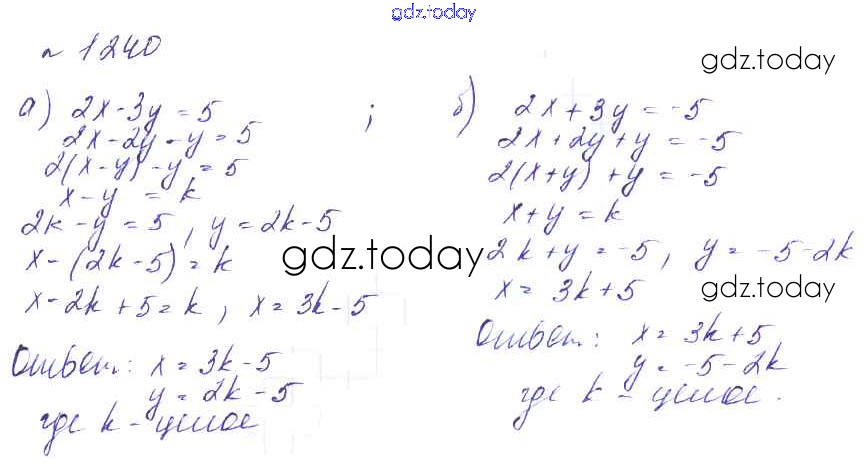 gdz.today
№ 1240
gdz.today
а) 2x-3y=5 ;
2x-2y-y=5
2(x-y)-y=5
x-y = k
2k-y=5, y=2k-5
x-(2k-5)=k
x-2k+5=k, x=3k-5
Ответ: x=3k-5
y=2k-5
где k-целое
gdz.today
б) 2x+3y=-5
2x+2y+y=-5
2(x+y)+y=-5
x+y=k
2k+y=-5, y=-5-2k
x=3k+5
gdz.today
Ответ: x=3k+5
y=-5-2k
где k-целое.